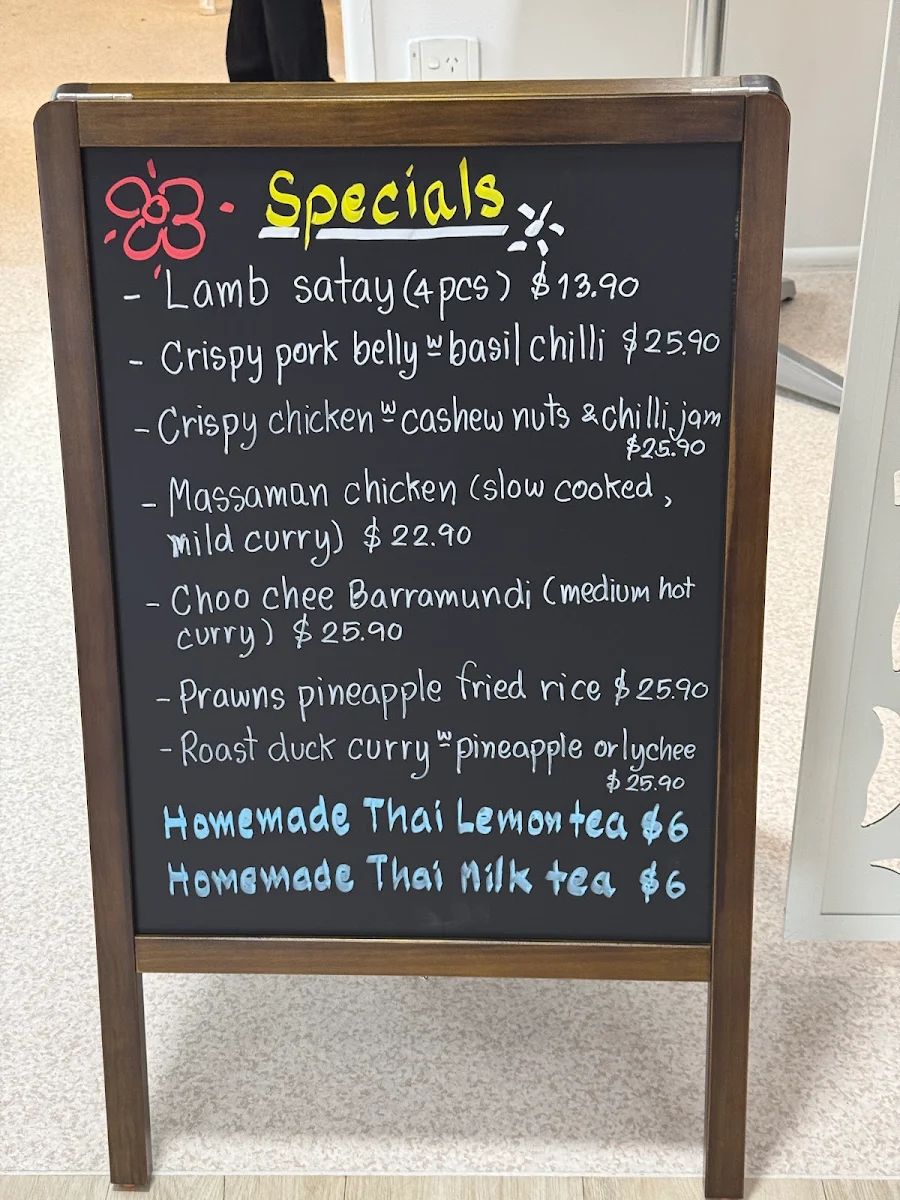 Specials
- Lamb satay (4pcs) $13.90
- Crispy pork belly w basil chilli $25.90
- Crispy chicken w cashew nuts & chilli jam
$25.90
- Massaman chicken (slow cooked,
mild curry) $22.90
- Choo chee Barramundi (medium hot
curry) $25.90
- Prawns pineapple fried rice $25.90
- Roast duck curry w pineapple or lychee
$25.90
Homemade Thai Lemon tea $6
Homemade Thai Milk tea $6